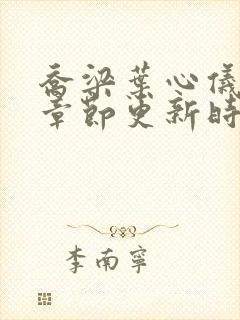 乔梁葉心儀
章節更新時
李南寧